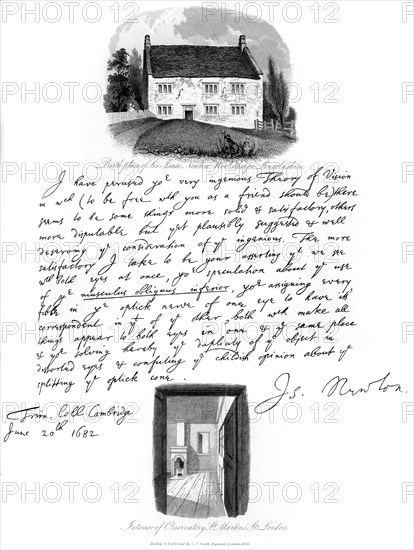 Birth place of Sir Isaac Newton Woolsthorpe Lincolnshire
I have perused yor very ingenious Theory of Vision
in wch (to be free wth you as a friend should be) there
seems to be some things more solid & satisfactory, others
more disputable but yet plausibly suggested & well
deserving ye consideration of ye ingenious. The more
satisfactory I take to be your asserting yt we see
wth both eyes at once, yor speculation about ye use
of ye musculus obliquus inferior, yor assigning every
fibre in ye optick nerve of one eye to have its
correspondent in yt of ye other both wch make all
things appear to both eyes in one & ye same place
& yor solving hereby ye duplicity of ye object in
distorted eyes & confuting ye childish opinion about ye
splitting ye optick cone.
Is. Newton.
Trin. Coll Cambridge
June 20th 1682
Interior of Observatory St Martins St London
PHOTO12